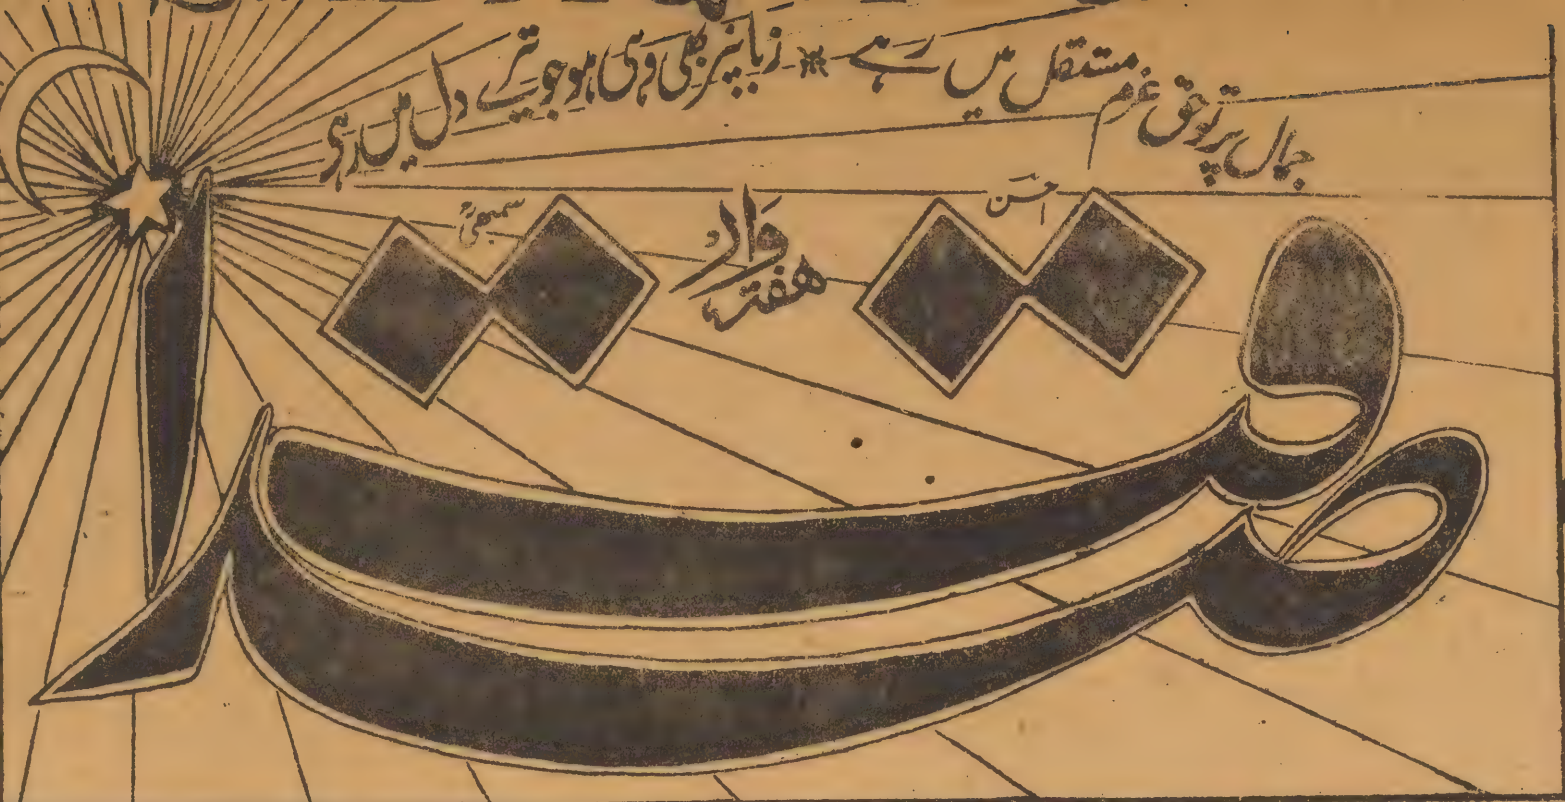 جمال پرتو حق عزم مستقل میں رہے ※ زبانپر بھی وہی ہو جو تیرے دل میں رہی
احسن
ہفتہ وار
صداقت